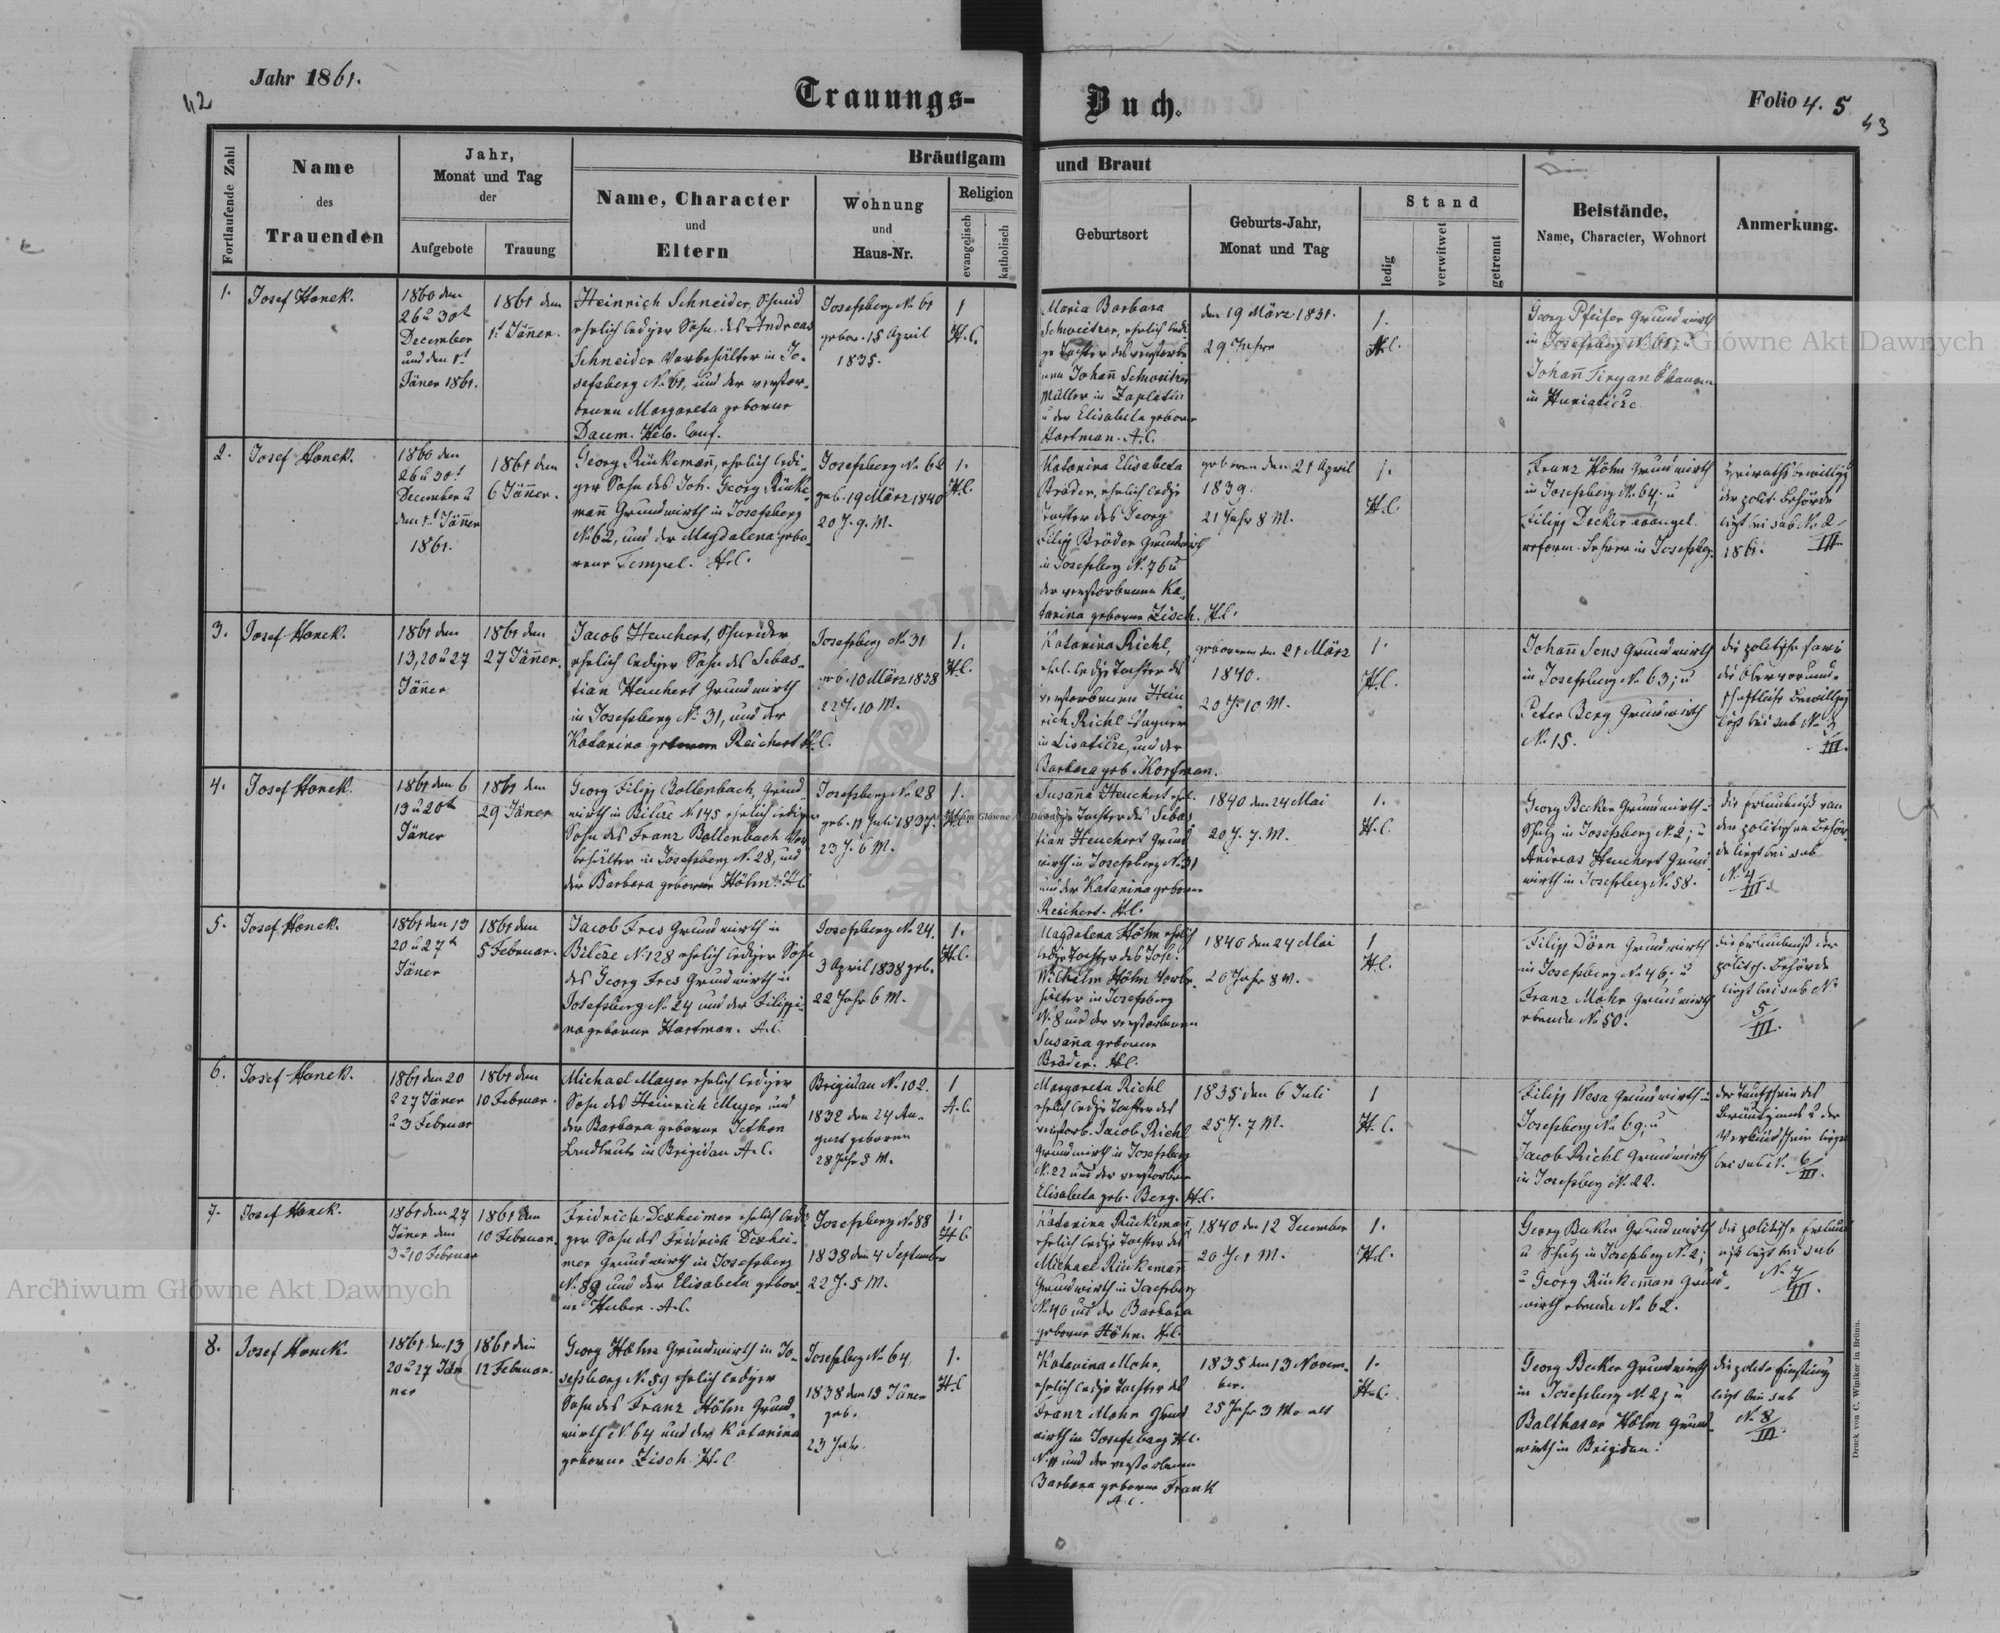 Jahr 1861.
42
Trauungs-
Buch.
Folio 4. 5
43
Fortlaufende Zahl
Name
des
Trauenden
Jahr,
Monat und Tag
der
Aufgebote
Trauung
Bräutigam
Name, Character
und
Eltern
Wohnung
und
Haus-Nr.
Religion
evangelisch
katholisch
und Braut
Geburtsort
Geburts-Jahr,
Monat und Tag
Stand
ledig
verwitwet
getrennt
Beistände,
Name, Character, Wohnort
Anmerkung.
1.
Josef Honek.
1860 den
26 u 30t
December
und den 1t
Jäner 1861.
1861 den
1t Jäner.
Heinrich Schneider, Schmid
ehrlich lediger Sohn des Andreas
Schneider Vorbehälter in Jo-
sefsberg No 61, und der verstor-
benen Margareta geborene
Daum. Helv. Conf.
Josefsberg No 61
gebor. 15 April
1835.
1
H.C.
Maria Barbara
Schweitzer, ehrlich ledi
ge Tochter des verstorbe
nen Johann Schweitzer
Müller in
u der Elisabeta geborne
Hartman. A.C.
den 19 März 1831.
29 Jahre
1.
H.C.
Georg Pfeifer Grundwirth
in Josefsberg No 61; u
Johann
in
2.
Josef Honek.
1860 den
26 u 30t
December u
den 1t Jänner
1861.
1861 den
6 Jänner.
Georg Rückemann, ehrlich ledi-
ger Sohn des Joh. Georg Rücke
mann Grundwirth in Josefsberg
No 62, und der Magdalena gebo-
rene Tempel. H.C.
Josefsberg No 62
geb. 19 März 1840
20 J. 9. M.
1.
H.C.
Katarina Elisabeta
Bräder, ehrlich ledige
Tochter des Georg
Filipp Bräder Grundwirth
in Josefsberg No 76 u
der verstorbenen Ka-
tarina geborene Zisch. H.C.
geboren den 21 April
1839.
21 Jahr 8 M.
1.
H.C.
Franz Höhn Grundwirth
in Josefsberg No 64; u
Filipp Decker evangel.
reform. Lehrer in Josefsbg.
Heirathsbewilligg
der polit. Behörde
liegt bei sub No 2/III
1861.
3.
Josef Honek.
1861 den
13, 20 u 27
Jäner
1861 den
27 Jänner.
Jacob Heuchert, Schneider
ehrlich lediger Sohn des Sebas-
tian Heuchert Grundwirth
in Josefsberg No 31, und der
Katarina geborene Reichert H.C.
Josefsberg No 31
geb. 10 März 1838
22 J. 10 M.
1.
H.C.
Katarina Richl,
ehrl. ledige Tochter des
verstorbenen Hein
rich Richl Wagner
in und der
Barbara geb. Korfman.
geboren den 21 März
1840.
20 J. 10 M.
1.
H.C.
Johann Sens Grundwirth
in Josefsberg No 63; u
Peter Berg Grundwirth
No 15.
die politische sowie
die Obervormund-
schaftliche Bewilligg
liegt bei sub No 3/III.
4.
Josef Honek.
1861 den 6
13 u 20t
Jäner
1861 den
29 Jäner
Georg Filipp Bollenbach, Grund-
wirth in Bilcze No 145 ehrlich lediger
Sohn des Franz Bollenbach Vor
behälter in Josefsberg No 28, und
der Barbara geborene Höhn. H.C.
Josefsberg No 28
geb. 11 Juli 1837.
23 J. 6 M.
1.
H.C.
Susanna Heuchert ehrl.
ledige Tochter des Sebas
tian Heuchert Grund
wirth in Josefsberg No 31
und der Katarina geborne
Reichert. H.C.
1840 den 24 Mai
20 J. 7. M.
1.
H.C.
Georg Becker Grundwirth u
Schulz in Josefsberg No 2; u
Andreas Heuchert Grund
wirth in Josefsberg No 58.
die Erlaubniß von
der politischen Behör-
de liegt bei sub
No 4/III.
5.
Josef Honek.
1861 den 13
20 u 27t
Jäner
1861 den
5 Februar.
Jacob Fres Grundwirth in
Bilcze No 128 ehrlich lediger Sohn
des Georg Fres Grundwirth in
Josefsberg No 24 und der Filippi-
na geborne Hartman. A.C.
Josefsberg No 24.
3 April 1838 geb.
22 Jahr 6 M.
1.
H.C.
Magdalena Höhn ehrlich
ledige Tochter des Joh.
Wilhelm Höhn Vorbe-
hälter in Josefsberg
No 8 und der verstorbenen
Susanna geborene
Bräder. H.C.
1840 den 24 Mai
20 Jahr 8 M.
1
H.C.
Filipp Dörn Grundwirth
in Josefsberg No 46; u
Franz Mohr Grundwirth
ebenda No 50.
die Erlaubniß der
politsch. Behörde
liegt bei sub No
5/III.
6.
Josef Honek.
1861 den 20
u 27 Jäner
u 3 Februar
1861 den
10 Februar.
Michael Mayer ehrlich lediger
Sohn des Heinrich Mayer und
der Barbara geborene Jethon
Landleute in Brigidau A.C.
Brigidau No 102.
1832 den 24 Au-
gust geboren
28 Jahr 5 M.
1
A.C.
Margareta Richl
ehrlich ledige Tochter des
verstorb. Jacob Richl
Grundwirth in Josefsberg
No 22 und der verstorbenen
Elisabeta geb. Berg. H.C.
1835 den 6 Juli
25 J. 7 M.
1
H.C.
Filipp Wesa Grundwirth in
Josefsberg No 69; u
Jacob Richl Grundwirth
in Josefsberg No 22.
der Taufschein des
Bräutigams u der
Verkündschein liegen
bei sub No 6/III.
7.
Josef Honek.
1861 den 27
Jäner den
3 u 10 Februar
1861 den
10 Februar.
Fridrich Dexheimer ehrlich ledi-
ger Sohn des Fridrich Dexhei-
mer Grundwirth in Josefsberg
No 89 und der Elisabeta gebor-
ne Huber. A.C.
Josefsberg No 88
1838 den 4 September
22 J. 5 M.
1.
H.C
Katarina Rückeman,
ehrlich ledige Tochter des
Michael Rückemann
Grundwirth in Josefsberg
No 40 und der Barbara
geborne Höhn. H.C.
1840 den 12 December
20 J. 1 M.
1.
H.C.
Georg Becker Grundwirth
u Schulz in Josefsberg No 2;
u Georg Rückeman Grund-
wirth ebenda No 62.
die politische Erlaub
niß liegt bei sub
No 7/III.
8.
Josef Honek.
1861 den 13
20 u 27 Jän
ner
1861 den
12 Februar.
Georg Höhn Grundwirth in Jo-
sefsberg No 59 ehrlich lediger
Sohn des Franz Höhn Grund
wirth No 64 und der Katarina
geborne Zisch H.C.
Josefsberg No 64,
1838 den 13 Jäner
geb.
23 Jahr.
1.
H.C
Katarina Mohr,
ehrlich ledige Tochter des
Franz Mohr Grund
wirth in Josefsberg H.C.
No 11 und der verstorbenen
Barbara geborne Frank
A.C.
1835 den 13 Novem-
ber.
25 Jahr 3 Mo alt
1.
H.C.
Georg Becker Grundwirth
in Josefsberg No 2; u
Balthasar Höhn Grund-
wirth in Brigidau.
liegt bei sub
No 8/III.
Druck von C. Winiker in Brünn.
Archiwum Główne Akt Dawnych
Archiwum Główne Akt Dawnych
Archiwum Główne Akt Dawnych